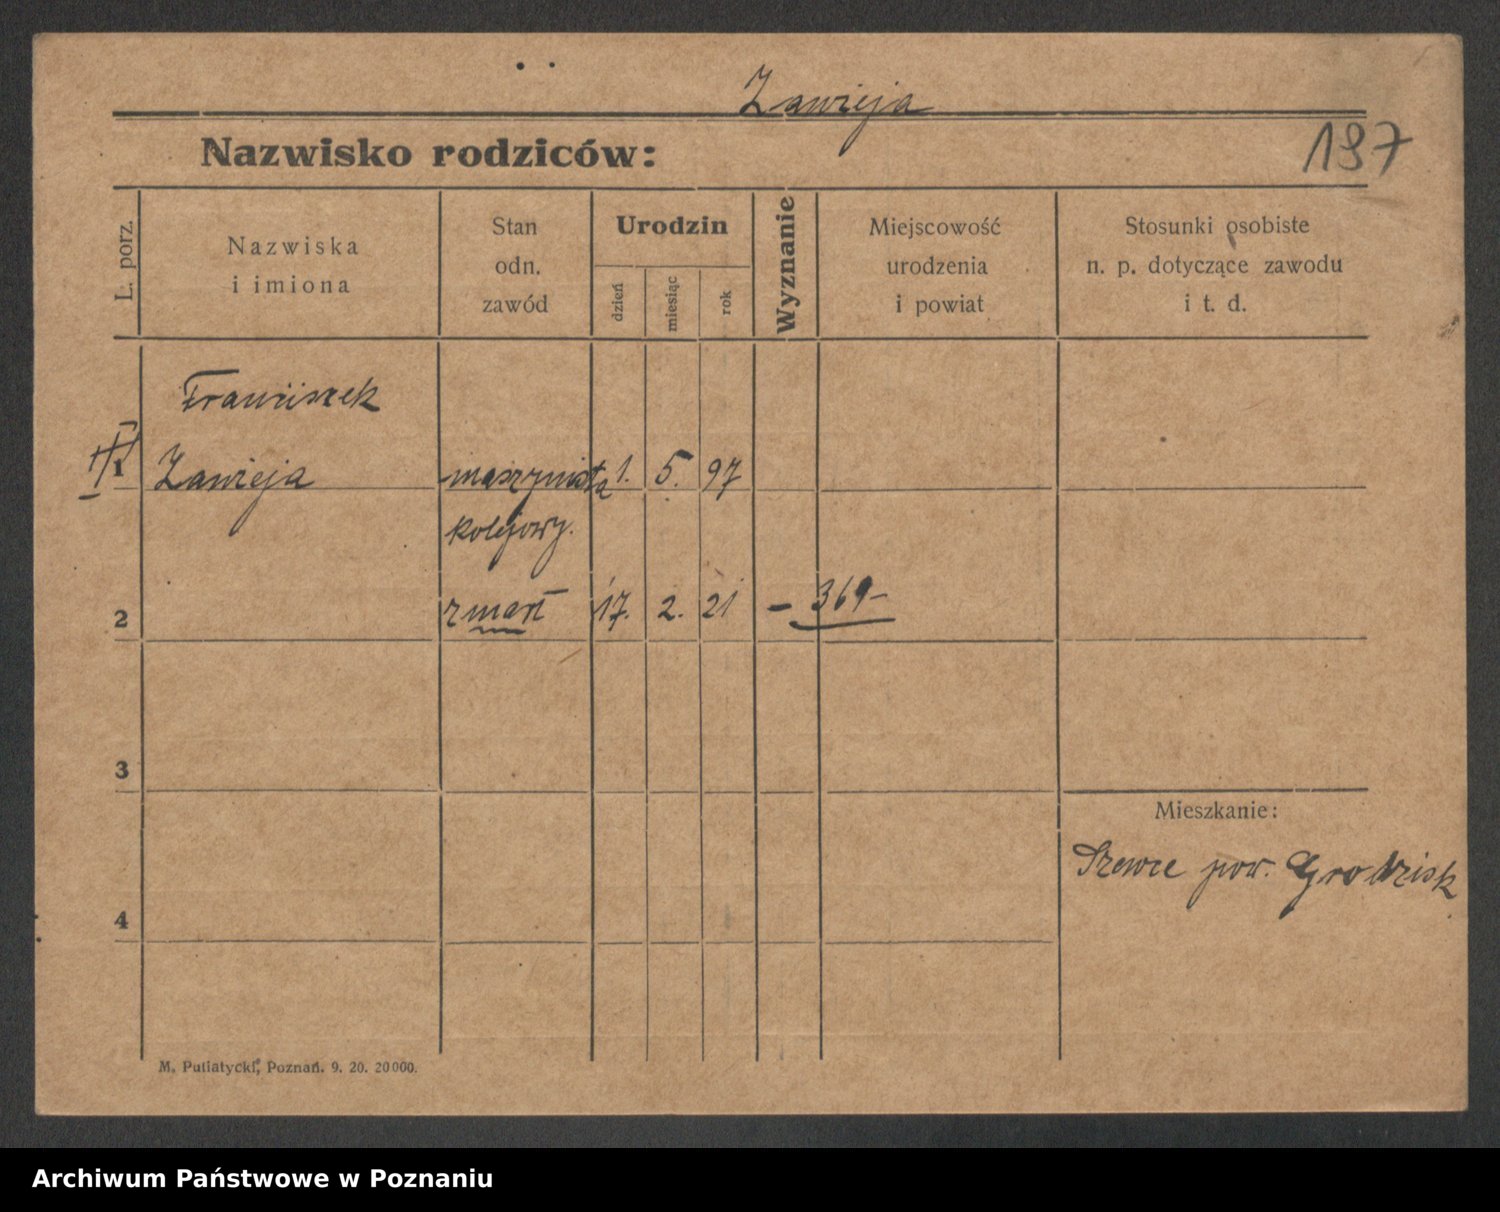 Zawieja
Nazwisko rodziców:
197
L. porz.
Nazwiska
i imiona
Stan
odn.
zawód
Urodzin
dzień
miesiąc
rok
Wyznanie
Miejscowość
urodzenia
i powiat
Stosunki osobiste
n. p. dotyczące zawodu
i t. d.
Franciszek
1 Zawieja maszynista 1. 5. 97
kolejowy.
2 zmarł 17. 2. 21 – 369 –
3
Mieszkanie:
Szewce pow. Grodzisk
4
M. Putiatycki, Poznań. 9. 20. 20000.
Archiwum Państwowe w Poznaniu